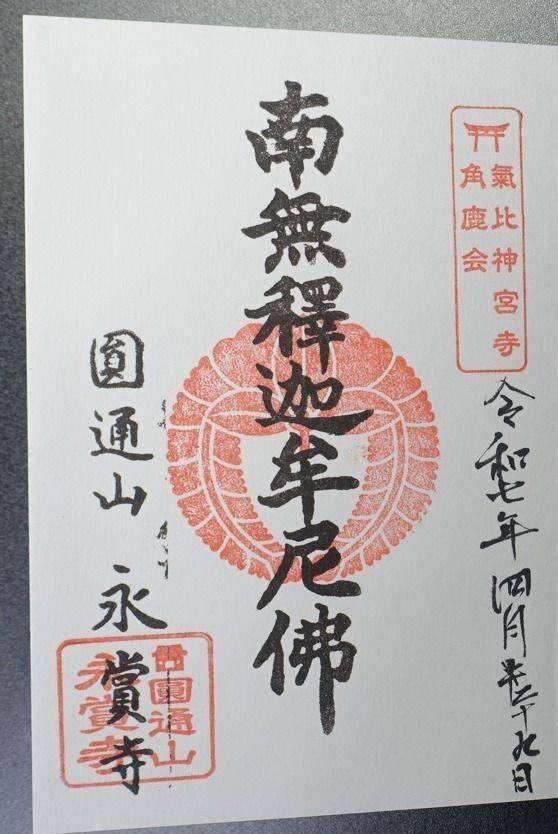 氣比神宮寺
角鹿会
令和七年 四月 十九日
南無釋迦牟尼佛
圓通山 永賞寺
圓通山
永賞寺